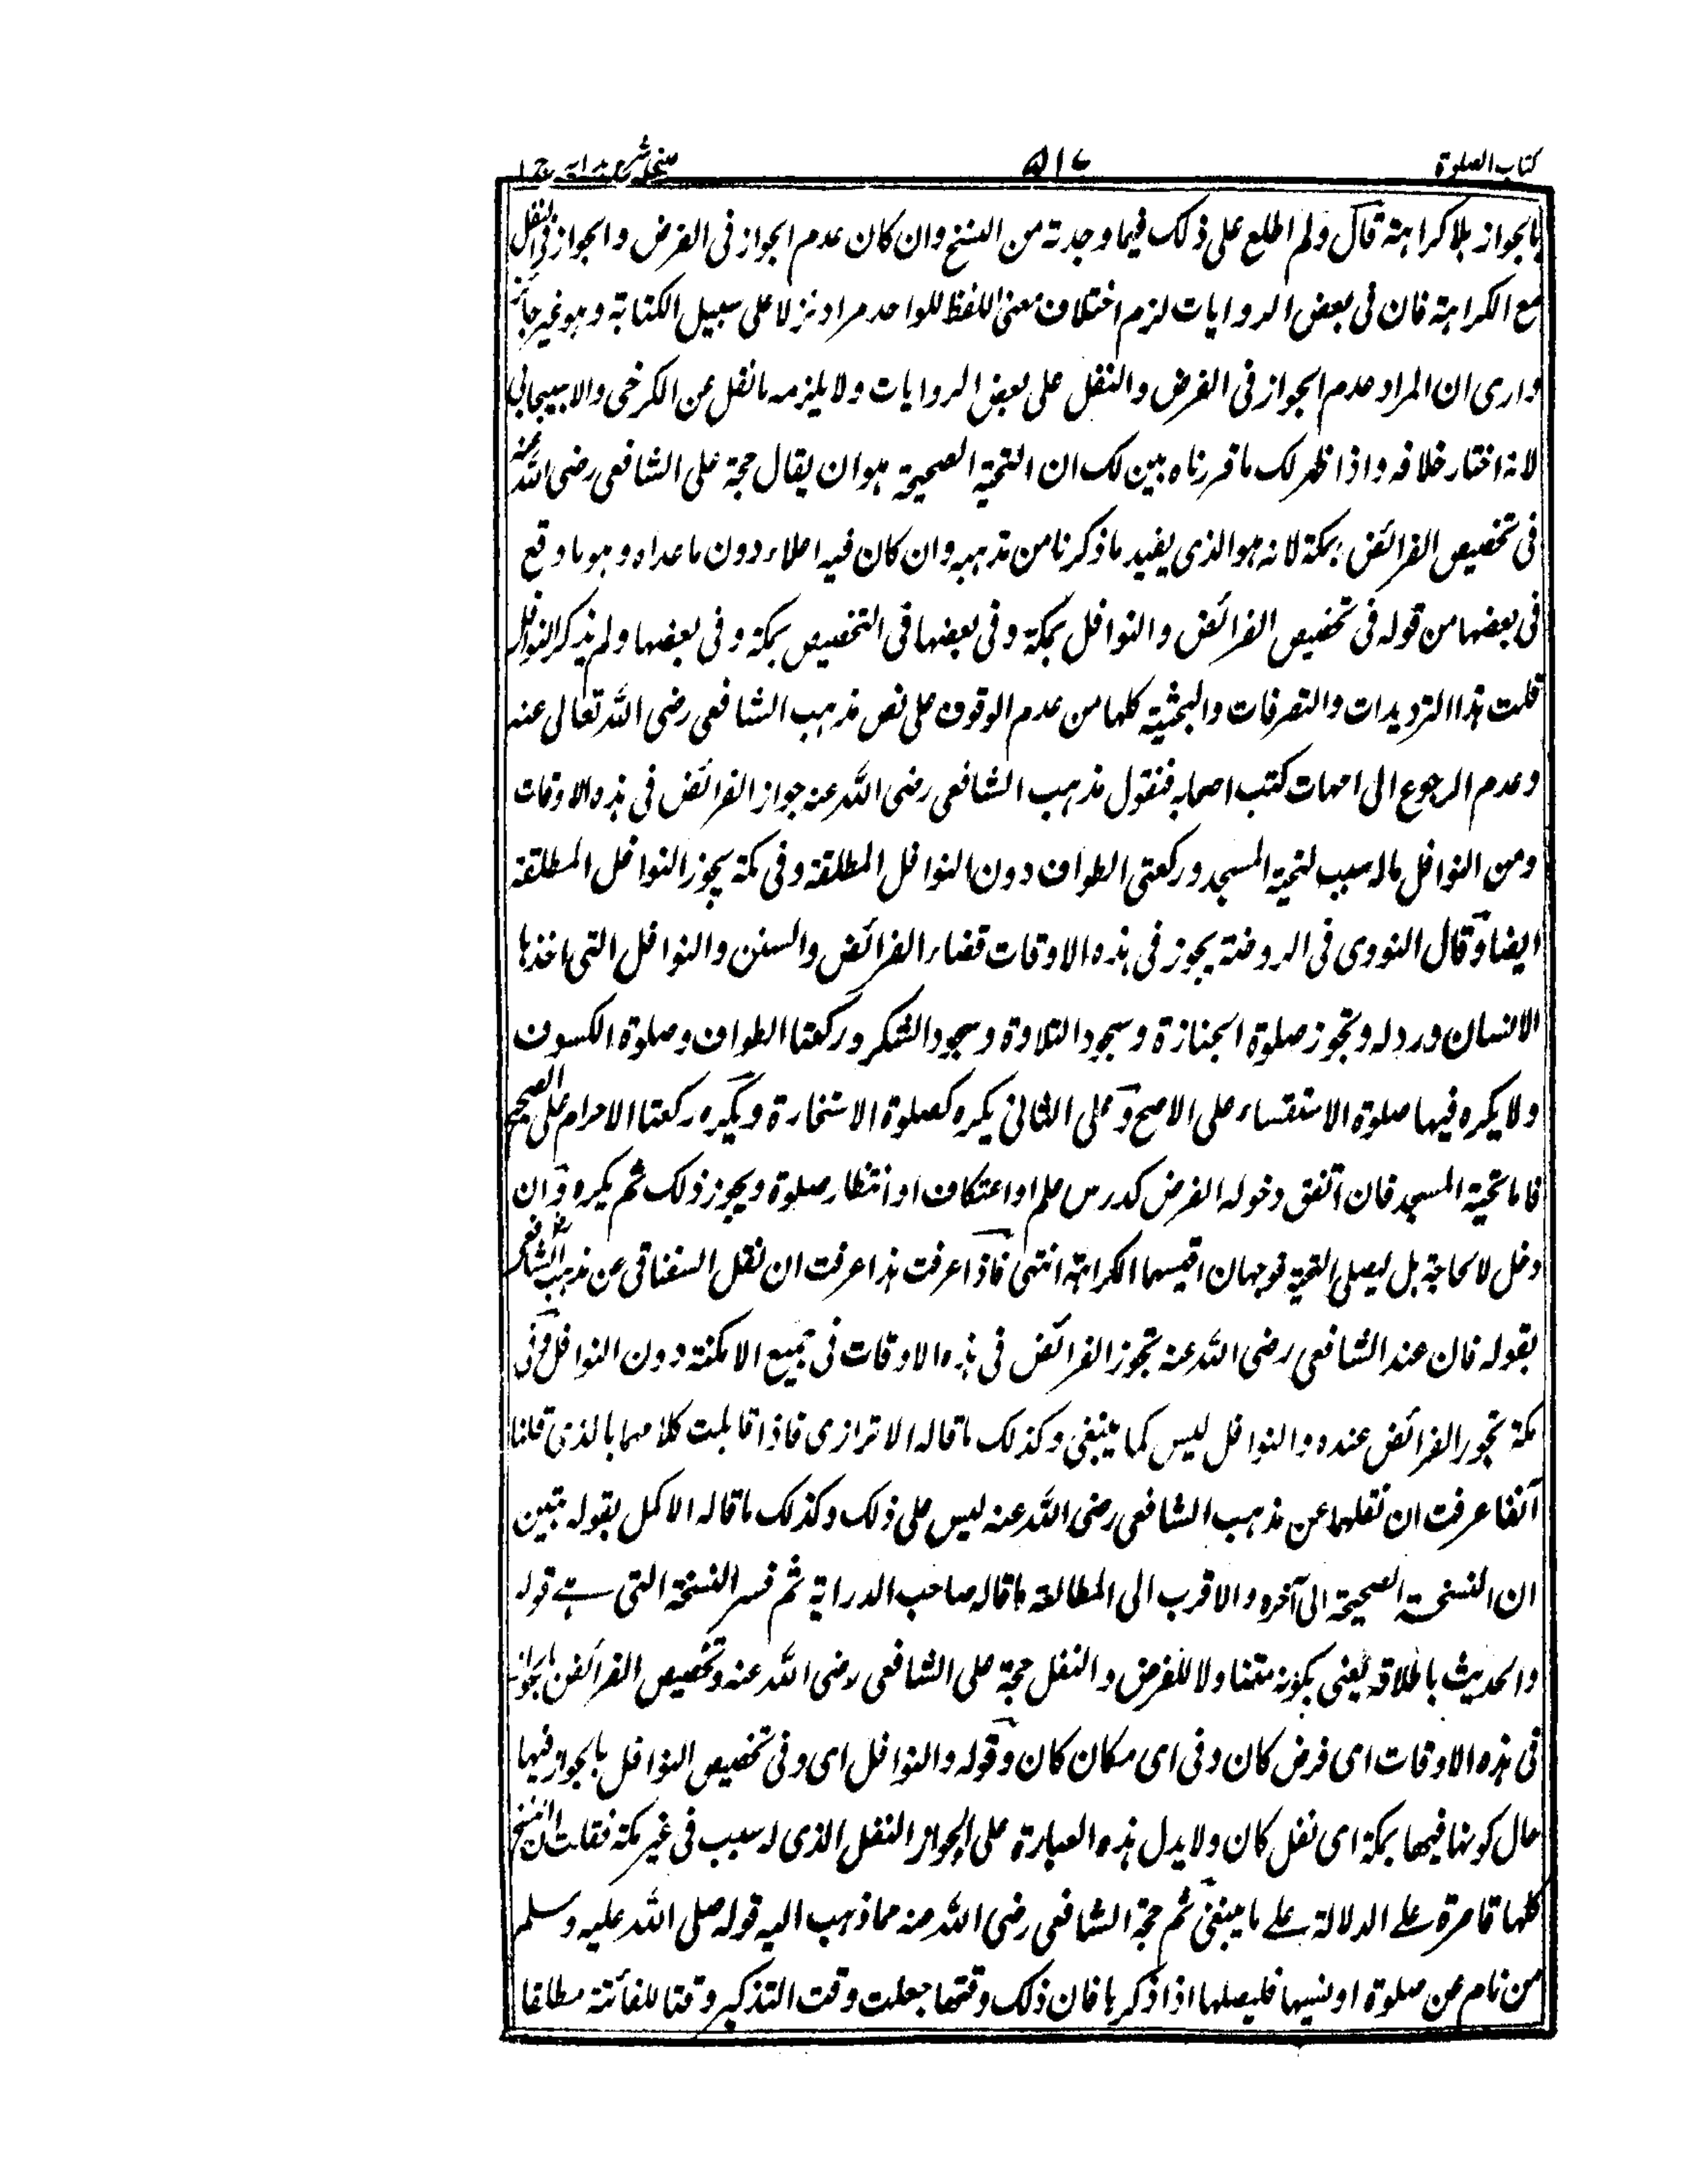 كتاب الصلوة
٥١٧
عينى شرح هدايه ج ١
بالجواز بلا كراهة قال ولم اطلع على ذلك فيما وجدته من النسخ وان كان عدم الجواز فى الفرض والجواز فى النفل
مع الكراهة فان فى بعض الروايات لزم اختلاف معنى اللفظ للواحد مراد نزلا على سبيل الكتابة وهو غير جائز
وارى ان المراد عدم الجواز فى الفرض والنفل على بعض الروايات ولا يلزمه ما نقل عن الكرخى والاسبيجابى
لانه اختار خلافه واذا ظهر لك ما قررناه بين لك ان التحية الصحيحة هو ان يقال حجة على الشافعى رضى الله عنه
فى تخصيص الفرائض بمكة لانه هو الذى يفيد ما ذكرنا من مذهبه وان كان فيه املاء دون ما عداه وهو ما وقع
فى بعضها من قوله فى تخصيص الفرائض والنوافل بمكة وفى بعضها فى التخصيص بمكة وفى بعضها ولم يذكر النوافل
قلت هذا الترديدات والتصرفات والبحثية كلها من عدم الوقوف على نص مذهب الشافعى رضى الله تعالى عنه
وعدم الرجوع الى امهات كتب اصحابه فنقول مذهب الشافعى رضى الله عنه جواز الفرائض فى هذه الاوقات
ومن النوافل ماله سبب لتحية المسجد وركعتى الطواف دون النوافل المطلقة وفى مكة يجوز النوافل المطلقة
ايضا وقال النووى فى الروضة يجوز فى هذه الاوقات قضاء الفرائض والسنن والنوافل التى اخذها
الانسان ورد له وتجوز صلوة الجنازة وسجود التلاوة وسجود الشكر وركعتا الطواف وصلوة الكسوف
ولا يكره فيها صلوة الاستقساء على الاصح وعلى الثانى يكره كصلوة الاستخارة ويكره ركعتا الاحرام على الصحيح
فاما تحية المسجد فان اتفق دخوله الفرض كدرس علم او اعتكاف او انتظار صلوة ويجوز ذلك ثم يكره وان
دخل لا لحاجة بل ليصلى التحية فوجهان اقيسهما الكراهة انتهى فاذا عرفت هذا عرفت ان نقل السغناقى عن مذهب الشافعى
بقوله فان عند الشافعى رضى الله عنه تجوز الفرائض فى هذه الاوقات فى جميع الامكنة دون النوافل وفى
مكة تجوز الفرائض عنده والنوافل ليس كما ينبغى وكذلك ما قاله الاترازى فاذا قابلت كلامهما بالذى قلنا
آنفا عرفت ان نقلهما عن مذهب الشافعى رضى الله عنه ليس على ذلك وكذلك ما قاله الاكمل بقوله تبين
ان النسخة الصحيحة الى آخره والاقرب الى المطالعة ما قاله صاحب الدراية ثم فسر النسخة التى هے قوله
والحديث باطلاقه يعنى بكونه متناولا للفرض والنفل حجة على الشافعى رضى الله عنه وتخصيص الفرائض بالجواز
فى هذه الاوقات اى فرض كان وفى اى مكان كان وقوله والنوافل اى وفى تخصيص النوافل بالجواز فيها
حال كونها فيها بمكة اى نفل كان ولا يدل هذه العبارة على الجواز النفل الذى له سبب فى غير مكة فقلت ان النسخ
كلها قاصرة علے الدلالة علے ما ينبغى ثم حجة الشافعى رضى الله عنه مما ذهب اليه قوله صلى الله عليه وسلم
من نام عن صلوة او نسيها فليصلها اذا ذكرها فان ذلك وقتها جعلت وقت التذكير وقتا للفائتة مطلقا